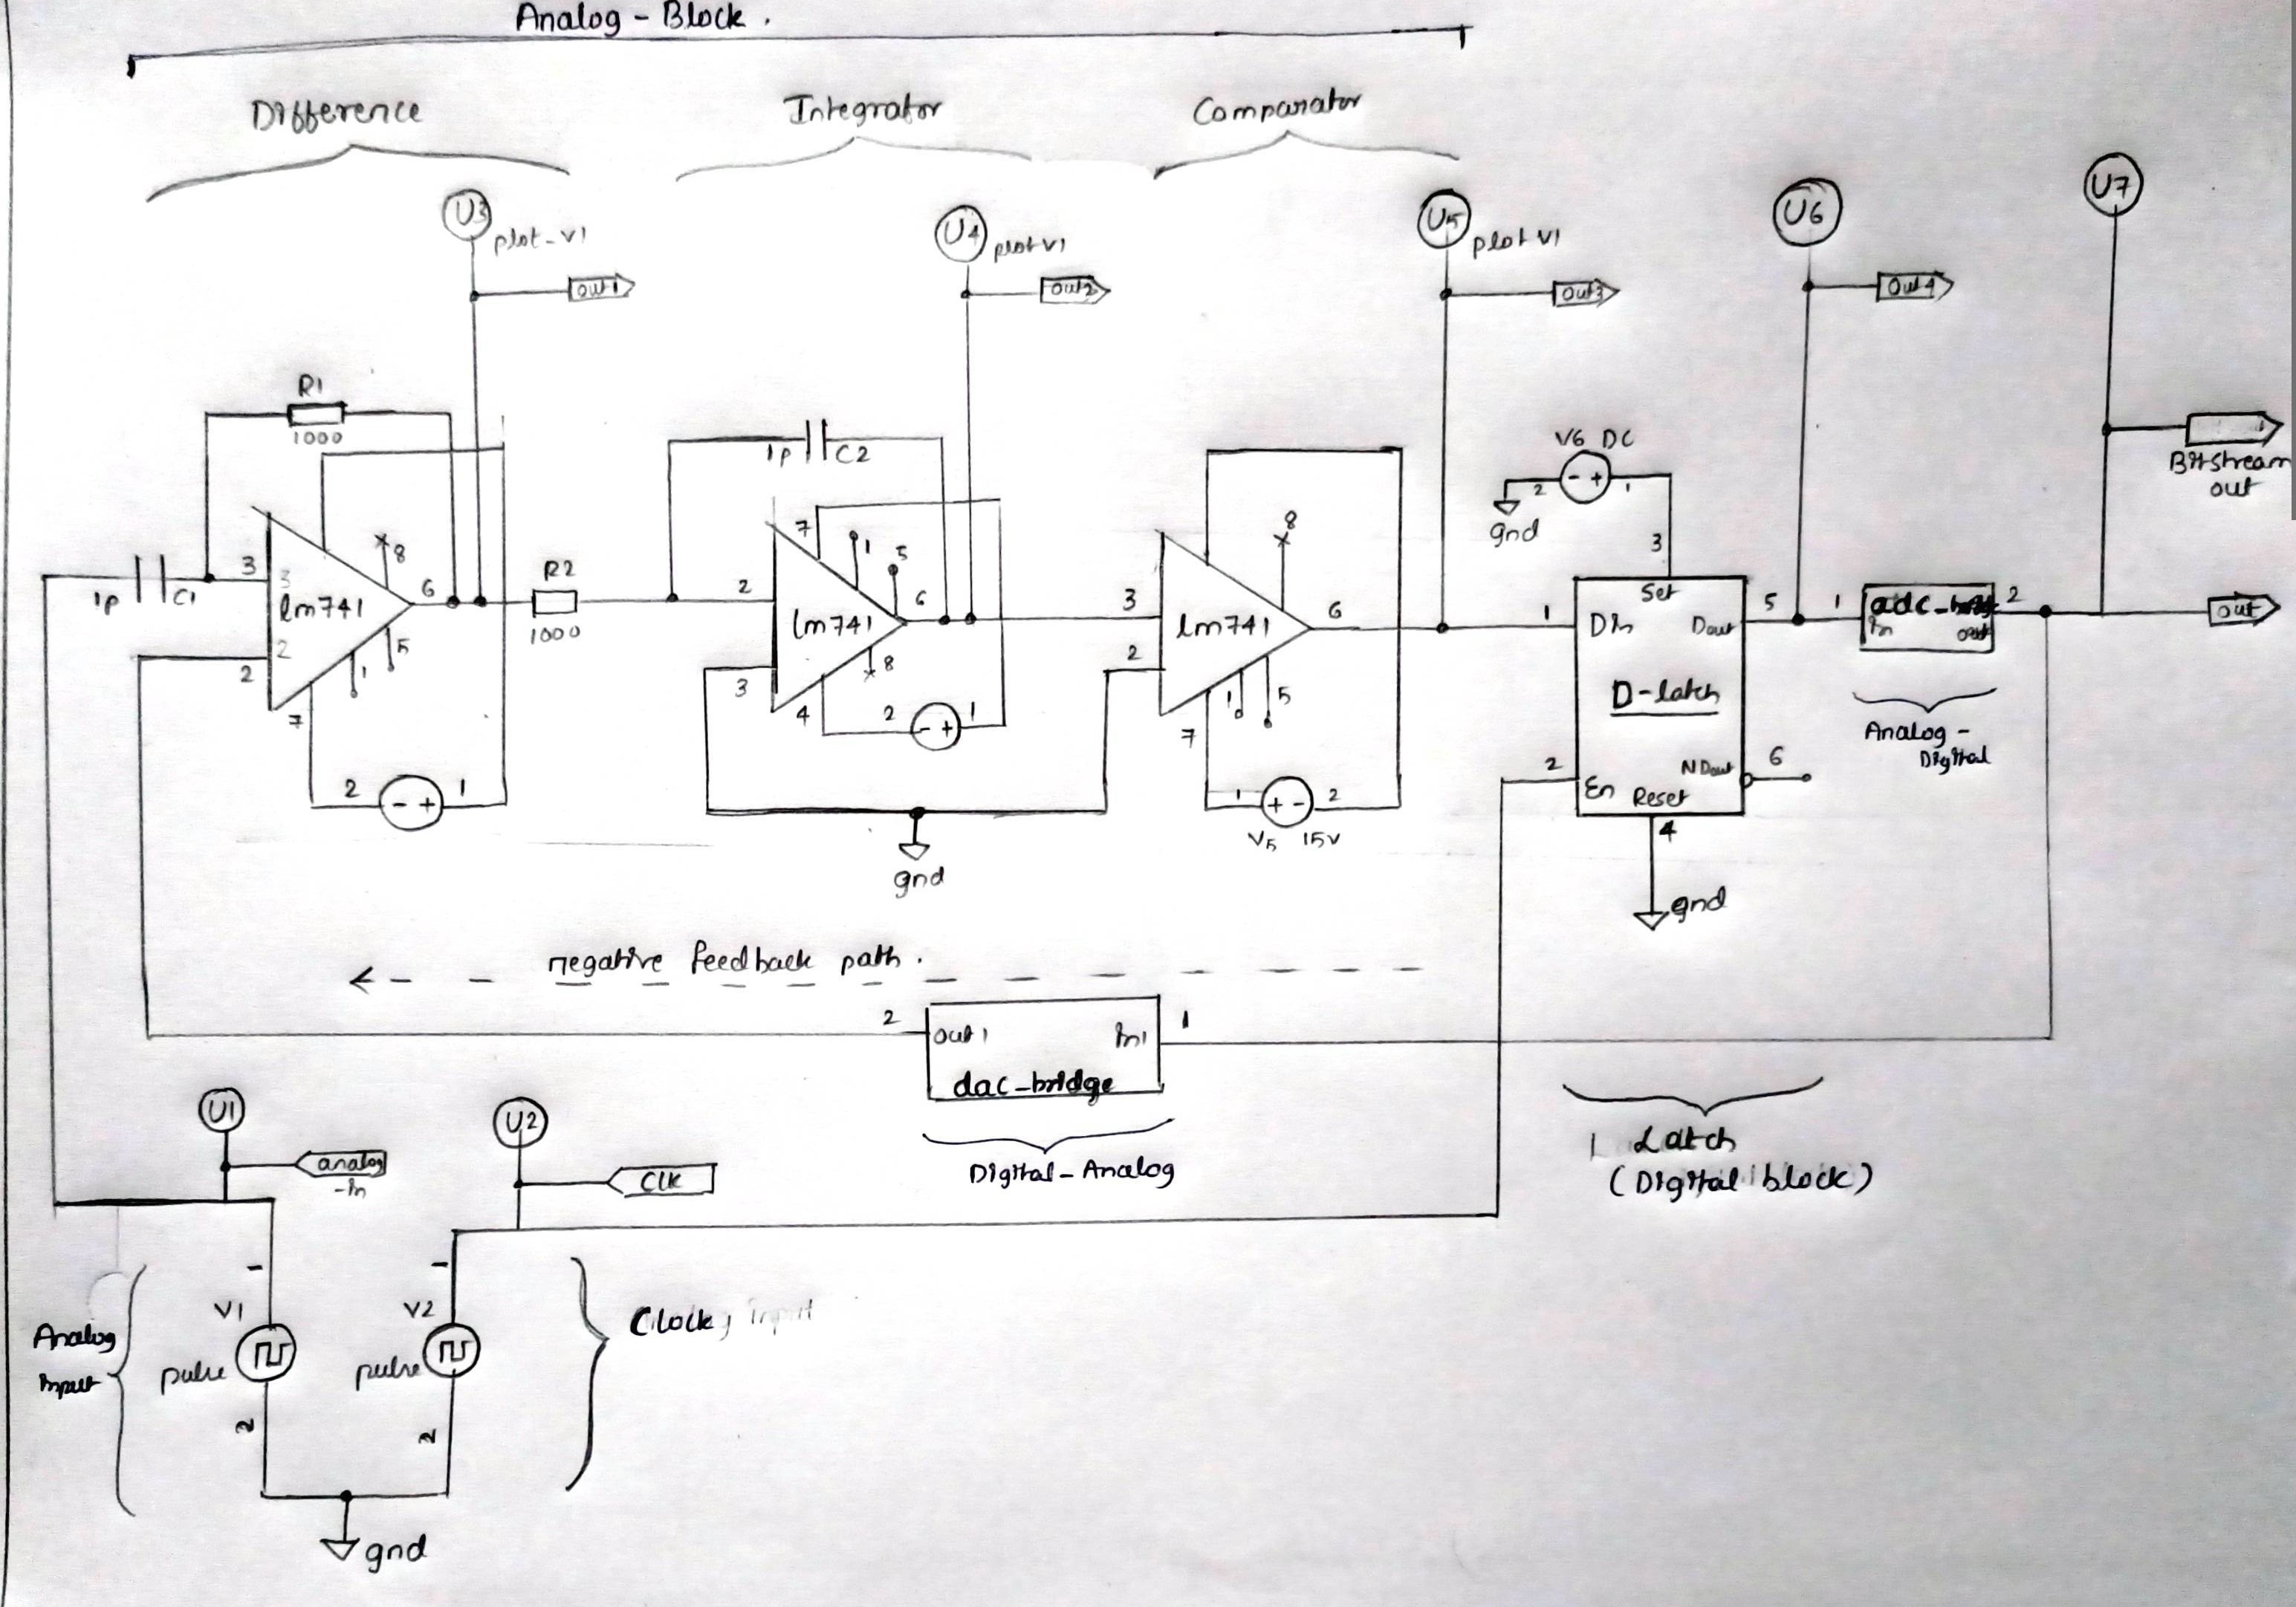 Analog-Block.
Difference
Integrator
Comparator
U3
plot-v1
out1
U4
plot v1
out2
U5
plot v1
out3
U6
out4
U7
R1
1000
1p
C2
V6 DC
2
1
gnd
3
Bitstream
out
1p
C1
3
3
lm741
2
2
8
6
1
5
7
2
- +
1
R2
1000
2
7
1
5
6
lm741
3
8
4
2
- +
1
gnd
3
8
lm741
6
2
1
5
7
1
+ -
2
V5 15v
1
Din
Set
Dout
5
D-latch
2
En
NDout
6
Reset
4
gnd
1
In
out
2
out
Analog-
Digital
negative feedback path.
2
out1
In1
1
dac-bridge
Digital-Analog
Latch
(Digital block)
U1
analog
-in
U2
Clk
1
V1
pulse
2
1
V2
pulse
2
Analog
Input
Clock Input
gnd